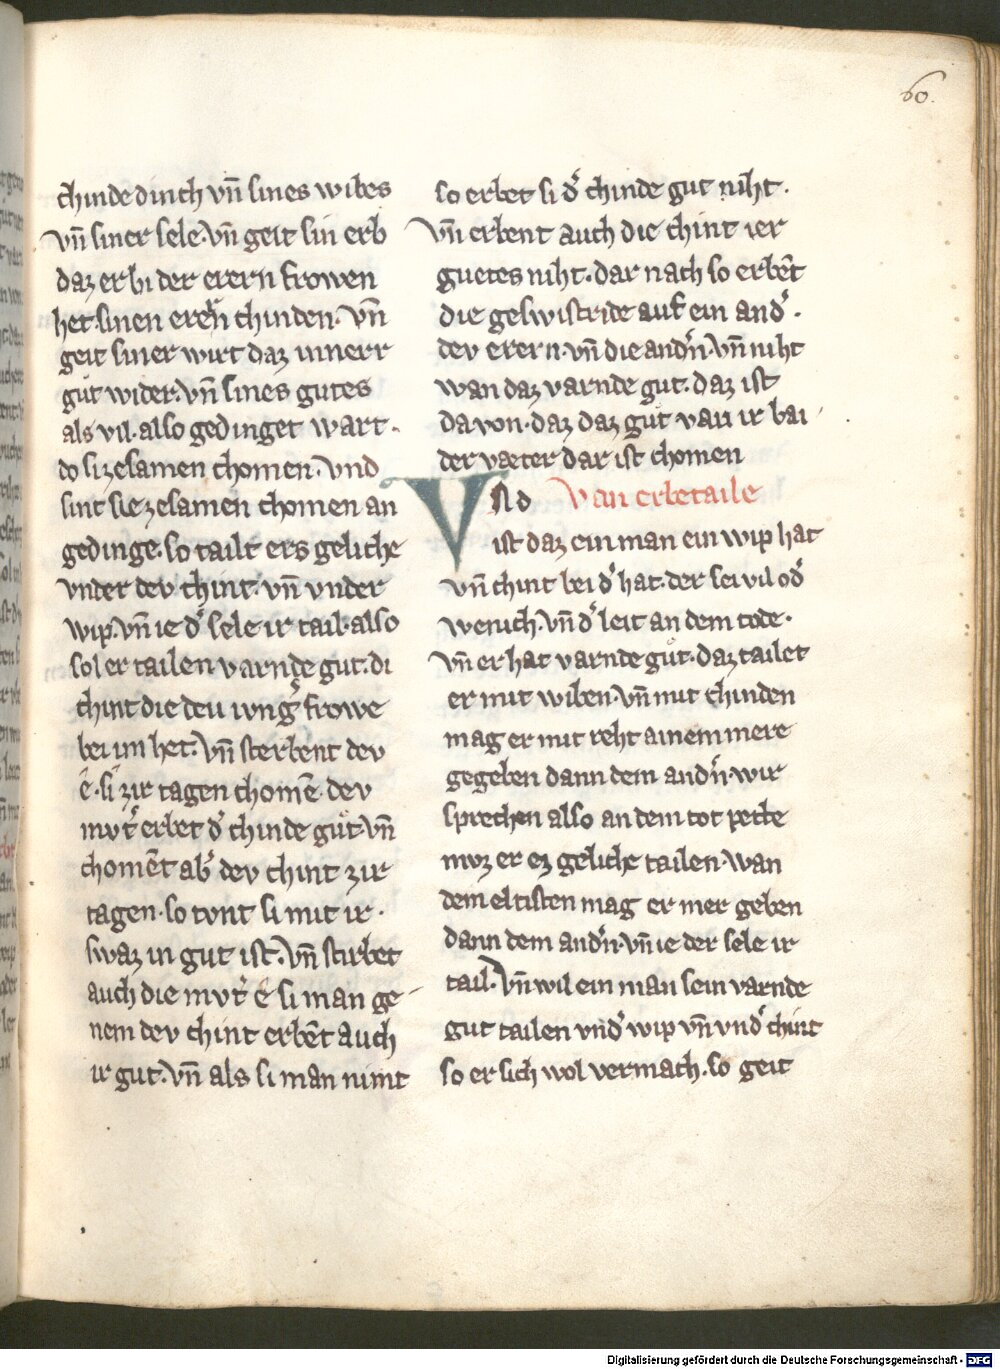 60.
chinde dinch vn̄ sines wibes
vn̄ siner sele. vn̄ geit sin erb
daz er bi der erern frowen
het. sinen erern chinden. vn̄
geit siner wirt daz innerr
gůt wider. vn̄ sines gutes
als vil. also gedinget wart.
do si zesamen chomen. vnd
sint sie zesamen chomen an
gedinge. so tailt ers geliche
vnder dev chint. vn̄ vnder
wip. vn̄ ie d͛ sele ir tail. also
sol er tailen varnde gut. di
chint die deu iung͛ frowe
bei im het. vn̄ sterbent dev
ê. si zir tagen chomē. dev
mvt͛ erbet d͛ chinde gůt. vn̄
choment ab͛ dev chint zir
tagen. so tvnt si mit ir.
swaz in gut ist. vn̄ stirbet
auch die mvt͛ ê si man ge-
nem dev chint erbēt auch
ir gut. vn̄ als si man nimt
so erbet si d͛ chinde gut niht.
vn̄ erbent auch die chint ier
guetes niht. dar nach so erbēt
die geswistride auf ein and͛.
dev erern. vn̄ die andn͛. vn̄ niht
wan daz varnde gut. daz ist
da von. daz daz gůt van ir bai-
der væter dar ist chomen
VNd Van erbetaile
ist daz ein man ein wip hat
vn̄ chint bei d͛ hat. der sei vil od͛
wenich. vn̄ d͛ leit an dem tode.
vn̄ er hat varnde gůt. daz tailet
er mit wiben. vn̄ mit chinden
mag er mit reht ainem mere
gegeben dann dem andn͛. wir
sprechen also an dem tot pette
mvz er ez geliche tailen. wan
dem eltisten mag er mer geben
dann dem andn͛. vn̄ ie der sele ir
tail. Vn̄ wil ein man sein varnde
gut tailen vnd͛ wip vn̄ vnd͛ chint
so er sich wol vermach. so geit
Digitalisierung gefördert durch die Deutsche Forschungsgemeinschaft - DFG